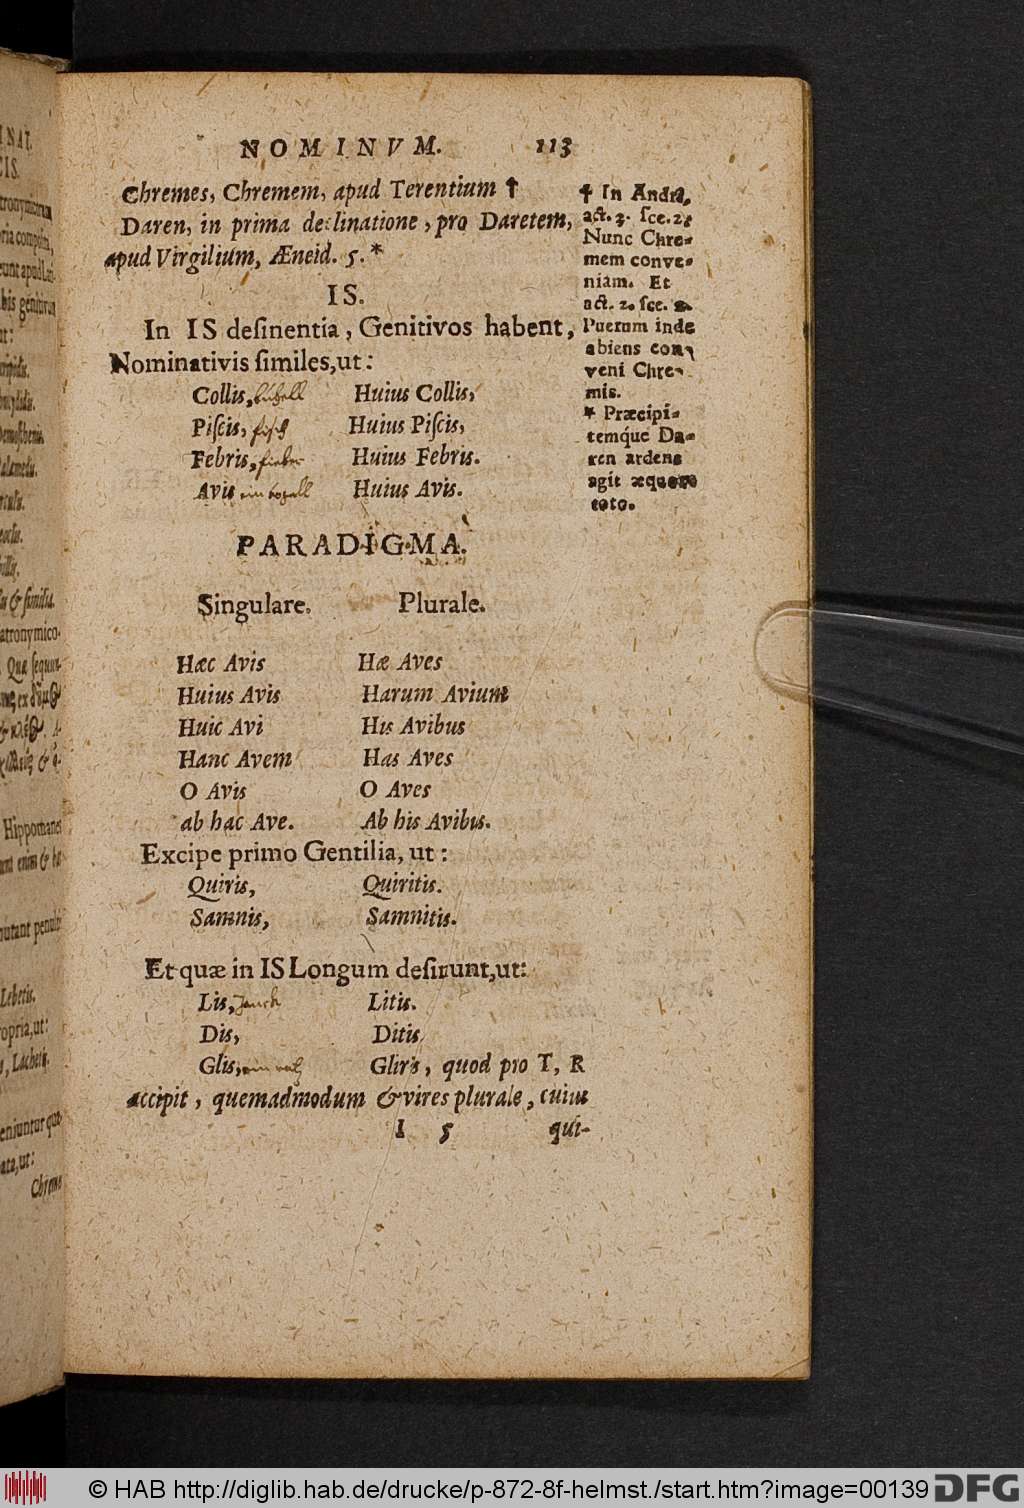 NOMINVM. 113
Chremes, Chremem, apud Terentium †
Daren, in prima declinatione, pro Daretem,
apud Virgilium, Æneid. 5.*
IS.
In IS desinentia, Genitivos habent,
Nominativis similes, ut:
Collis, Huius Collis,
Piſcis, fiſch Huius Piſcis,
Febris, fieber Huius Febris.
Avis ein vogell Huius Avis.
† In Andria,
act. 3. ſce. 2.
Nunc Chre-
mem conve-
niam. Et
act. 2. ſce. 2.
Puerum inde
abiens con-
veni Chre-
mis.
* Præcipi-
temque Da-
ren ardens
agit æquore
toto.
PARADIGMA.
Singulare. Plurale.
Hæc Avis Hæ Aves
Huius Avis Harum Avium
Huic Avi His Avibus
Hanc Avem Has Aves
O Avis O Aves
ab hac Ave. Ab his Avibus.
Excipe primo Gentilia, ut:
Quiris, Quiritis.
Samnis, Samnitis.
Et quæ in IS Longum desinunt, ut:
Lis, Zanck Litis.
Dis, Ditis
Glis, ein ratz Gliris, quod pro T, R
accipit, quemadmodum & vires plurale, cuius
I 5 qui-
© HAB http://diglib.hab.de/drucke/p-872-8f-helmst./start.htm?image=00139 DFG